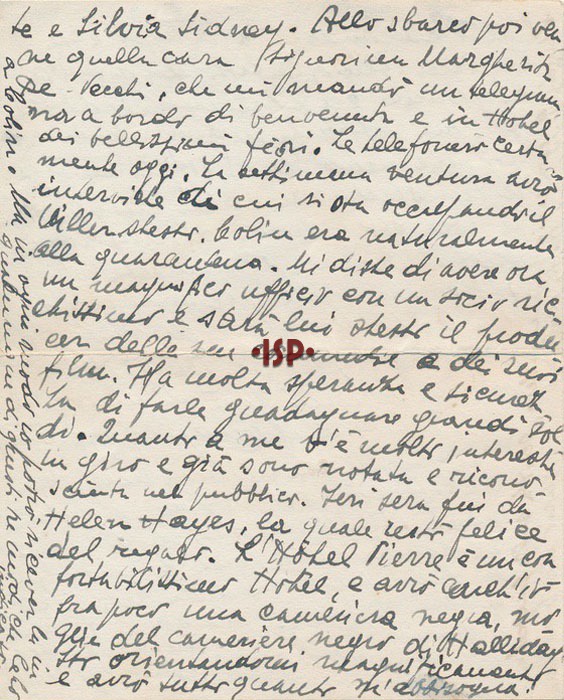 te e Silvia Sidney. Allo sbarco poi ven
ne quella cara Signorina Margherita
De-Vecchi, che mi mandò un telegram
ma a bordo di benvenuta e in Hotel
dei bellissimi fiori. Le telefonerò certa
mente oggi. La settimana ventura avrò
interviste di cui si sta occupando il
Viller stesso. Colin era naturalmente
alla quarantena. Mi disse di avere ora
un magnifico ufficio con un socio ric
chissimo e sarà lui stesso il produ
cer della sua e dei suoi
film. Ha molta speranza e sicurez
za di farle guadagnare grandi sol
di. Quanto a me v'è molto interesse
in giro e già sono notata e ricono
sciuta nel pubblico. Ieri sera fui da
Helen Hayes, la quale restò felice
del regalo. L'Hôtel Pierre è un con
fortabilissimo Hotel, e avrò anch'io
fra poco una cameriera negra, mo
glie del cameriere negro di Halliday
Sto orientandomi magnificamente
e avrò tutto quanto mi
a Colin. Ma in ogni modo io potrò ricavarle in
•ISP•